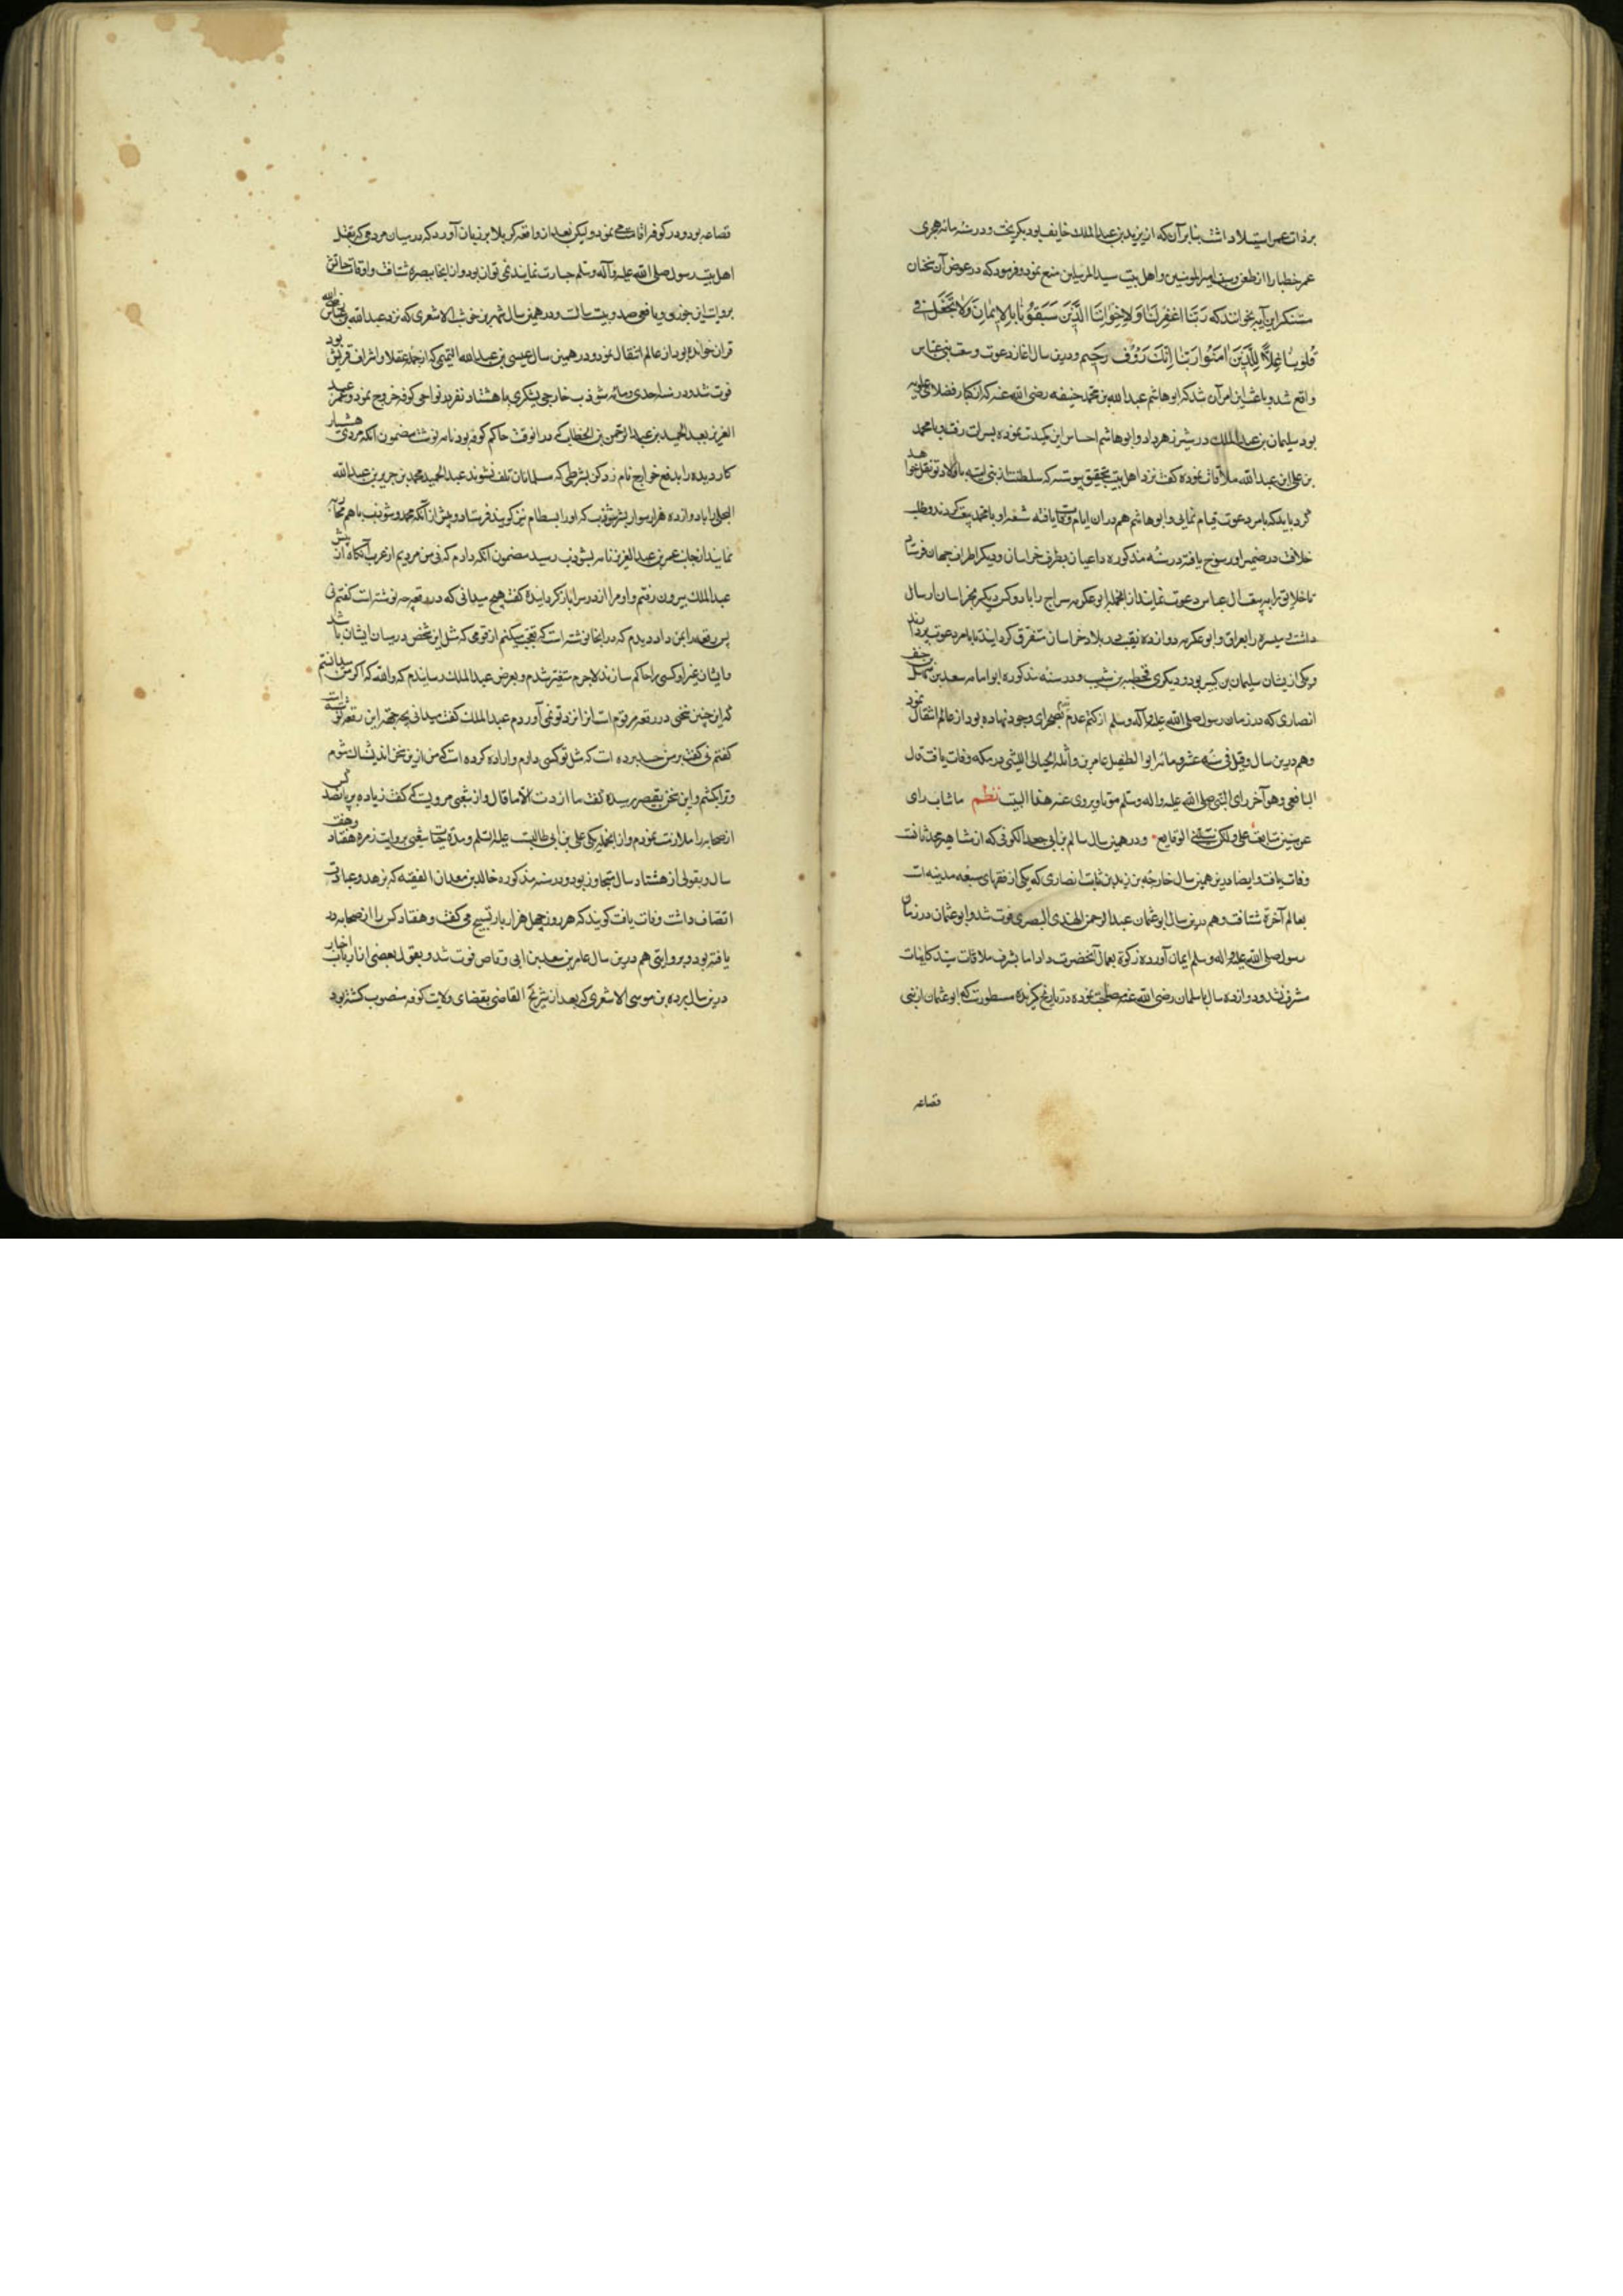 بر ذات عمر استیلا داشت بنابر آن که از یزید بن عبدالملک خایف بود بگریخت و در سنه مائه هجری
عمر خطبا را از طعن و سب امیرالمومنین و اهل بیت سید المرسلین منع نمود و فرمود که در عوض آن سخنان
مستنکر این آیه بخوانند که رَبَّنَا اغْفِرْ لَنَا وَلِاِخْوَانِنَا الَّذِینَ سَبَقُونَا بِالاِیمَانِ وَلَا تَجْعَلْ فِی
قُلُوبِنَا غِلاًّ لِلَّذِینَ اٰمَنُوا رَبَّنَا اِنَّکَ رَؤُفٌ رَحِیم و درین سال اغاز دعوت و بیعت بنی عباس
واقع شد و باعث این امر آن شد که ابو هاشم عبدالله بن محمد حنیفه رضی الله عنه که از کبار فضلای علویه
بود سلیمان بن عبدالملک در شیر زهر داد و ابو هاشم احساس این کیدت نموده بسرات رفت و با محمد
بن علی ابن عبدالله ملاقات نموده کفت نزد اهل بیت بتحقیق پیوسته که سلطنت از بنی امیه باولاد تو نقل خواهد
کرد باید که بامر دعوت قیام نمایی و ابو هاشم هم در ان ایام وفات یافته شیعه او با محمد بیعت کردند و طلب
خلافت در ضمیر او رسوخ یافته در سنه مذکوره داعیان بطرف خراسان و دیکر اطراف جهان فرستاد
تا خلایق را به بیعت ال عباس دعوت نمایند از انجمله ابو عکرمه سراج را با دو کس دیکر بخراسان ارسال
داشت و میسره را بعراق و ابو عکرمه دوازده نقیب در بلاد خراسان متفرق کردانید تا بامر دعوت پردازند
و یکی از یشان سلیمان بن کثیر بود و دیکری قحطبه بن شبیب و در سنه مذکوره ابو امامه سعد بن سهل حنیف
انصاری که در زمان رسول صلی الله علیه و آله وسلم از کتم عدم قدم بصحرای وجود نهاده بود از عالم انتقال نمود
و هم درین سال و قیل فی سنه عشر و مائه ابو الطفیل عامر بن واثله اللیثی در مکه وفات یافت قال
الیافعی و هو آخر رای النبی صلی الله علیه واله وسلم موتا و یروی عنه هذا البیت نظم ما شاب رای
عن سنین تتابعت علی ولکن شیبنی الوقایع و در همین سال سالم بن ابی جعد الکوفی که از مشاهیر محدثانست
وفات یافت و ایضا درین همین سال خارجة بن زید بن ثابت انصاری که یکی از فقهای سبعه مدینه است
بعالم آخرة شتافت و هم درین سال ابو عثمان عبدالرحمن الهندی البصری فوت شد و ابو عثمان در زمان
رسول صلی الله علیه واله وسلم ایمان آورده زکوة بعمال آنحضرت داد اما بشرف ملاقات سید کاینات
مشرف نشد و دوازده سال با سلمان رضی الله عنه صحبت نموده در تاریخ کزیده مسطورست که ابو عثمان از بنی
قضاعه
قضاعه بود و در کوفه اقامت می نمود و لیکن بعد از واقعه کربلا بر زبان آورد که در میان مردمی که بقتل
اهل بیت رسول صلی الله علیه وآله وسلم جسارت نمایند نمی توان بود و از انجا ببصره شتافت و اوقات حیاتش
بروایت ابن جوزی و یافعی صد و بیست سالست و در همین سال شهر بن حوشب الاشعری که نزد عبدالله بن عباس رضی الله
قران خوانده بود از عالم انتقال نمود و در همین سال عیسی بن عبدالله التیمی که از جمله عقلا و اشراف قریش بود
فوت شد و در سنه احدی و مائه شوذب خارجی یشکری با هشتاد نفر در نواحی کوفه خروج نمود و عمر عبد
العزیز بعبد الحمید بن عبدالرحمن بن الخطاب که در انوقت حاکم کوفه بود نامه نوشت مضمون آنکه مردی هشیار
کار دیده را بدفع خوارج نام زد کن بشرطی که مسلمانان تلف نشوند عبدالحمید محمد بن جریر بن عبدالله
البجلی را با دوازده هزار سوار پیش شوذب که او را بسطام نیز کویند فرستاد و پیش از آنکه محمد و شوذب باهم محاربه
نمایند از جانب عمر بن عبدالعزیز نامه بشوذب رسید مضمون آنکه
عبدالملک بیرون رفتم و او مرا از در سرا باز کردانیده کفت هیچ میدانی که در رقعه چه نوشته است کفتم نی
پس رقعه را بمن داد دیدم که در انجا نوشته است که تعجب میکنم از قومی که مثل این شخص در میان ایشان باشد
و ایشان غیر او کسی را حاکم سازند لاجرم متغیر شدم و بعرض عبدالملک رسانیدم که والله که اکر من میدانستم
که این چنین سخنی در رقعه مرقوم است انرا نزد تو نمی آوردم عبدالملک کفت میدانی بچه جهت این رقعه نوشته است
کفتم نی کفت بر من حسد برده است که مثل تو کسی دارم و اراده کرده است که من ازین سخن اندیشناک شوم
و ترا بکشم و این سخن بقیصر رسیده کفت ما اردت الا ما قال و از شعبی مرویست که کفت زیاده بر پانصد کس
از صحابه را ملازمت نمودم و از انجمله یکی علی بن ابی طالبست علیه السلم و مدة حیات شعبی بروایت زمره هفتاد و هفت
سال و بقولی از هشتاد سال متجاوز بود و در سنه مذکوره خالد بن معدان الفقیه که بزهد و عبادت
اتصاف داشت وفات یافت کویند که هر روز چهل هزار بار تسبیح می کفت و هفتاد کس را از صحابه در
یافته بود و بروایتی هم درین سال عامر بن سعد بن ابی وقاص فوت شد و بقول بعضی از ارباب اخبار
درین سال برده بن موسی الاشعری که بعد از شریح القاضی بقضای ولایت کوفه منصوب کشته بود